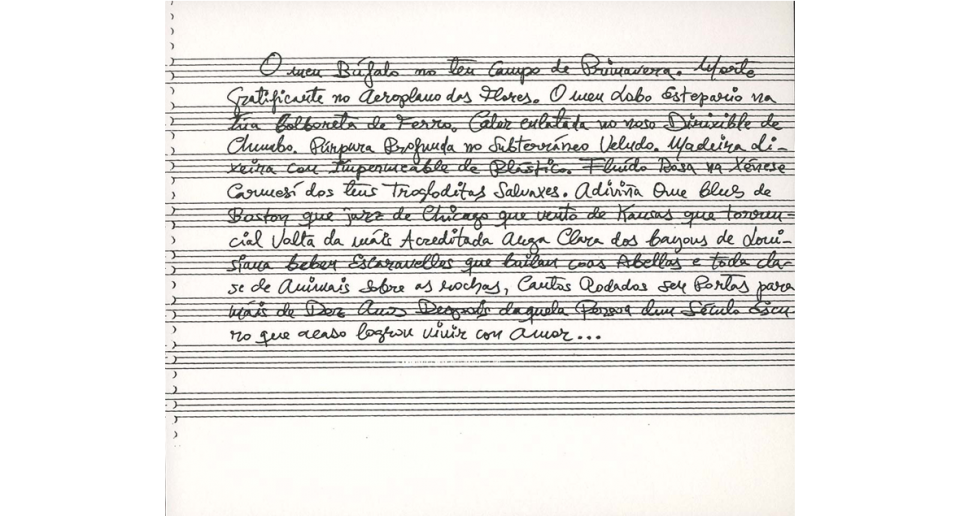 O meu Búfalo no teu Campo de Primavera. Morte
Gratificante no Aeroplano das Flores. O meu Lobo Estepario na
túa Bolboreta de Ferro. Calor enlatada no noso Dirixible de
Chumbo. Púrpura Profunda no Subterráneo Veludo. Madeira li-
xeira con Impermeable de Plástico. Fluído Rosa na Xénese
Carmesí dos teus Trogloditas Salvaxes. Adiviña Que blues de
Boston que jazz de Chicago que vento de Kansas que torren-
cial Volta da máis Acreditada Auga Clara dos bayous de Loui-
siana beben Escaravellos que bailan coas Abellas e toda cla-
se de Animais sobre as rochas, Cantos Rodados sen Portas para
máis de Dez Anos Despois daquela Persoa dun Século Escu-
ro que acaso logrou vivir con amor...